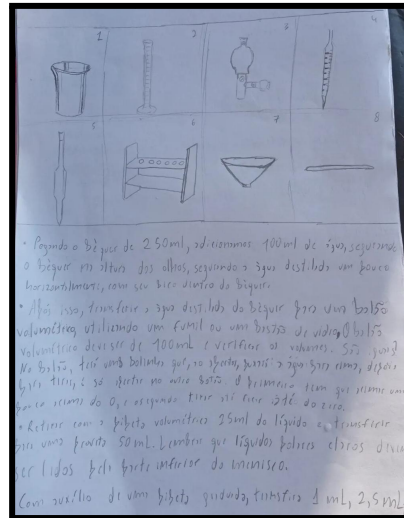 1 2 3 4
5 6 7 8
• Pegando o béquer de 250ml, adicionamos 100ml de água, segurando
o béquer na altura dos olhos, segurando a água destilada um pouco
horizontalmente, com seu bico dentro do béquer.
• Após isso, transferir a água destilada do béquer para um balão
volumétrico, utilizando um funil ou um bastão de vidro. O balão
volumétrico deve ser de 100ml e verifire os volumes. São iguais?
No balão, terá uma bolinha que, ao apertar, puxará a água para cima, depois
para tirar, é só apertar no outro botão. O primeiro tem que um
pouco acima do 0, e o segundo tirar até ficar do zero.
• Retirar com a pipeta volumétrica 25ml do líquido e transferir
para uma proveta 50mL. Lembrar que líquidos claros devem
ser lidos pela parte inferior do menisco.
Com auxílio de uma pipeta graduada, transfira 1 mL, 2,5mL